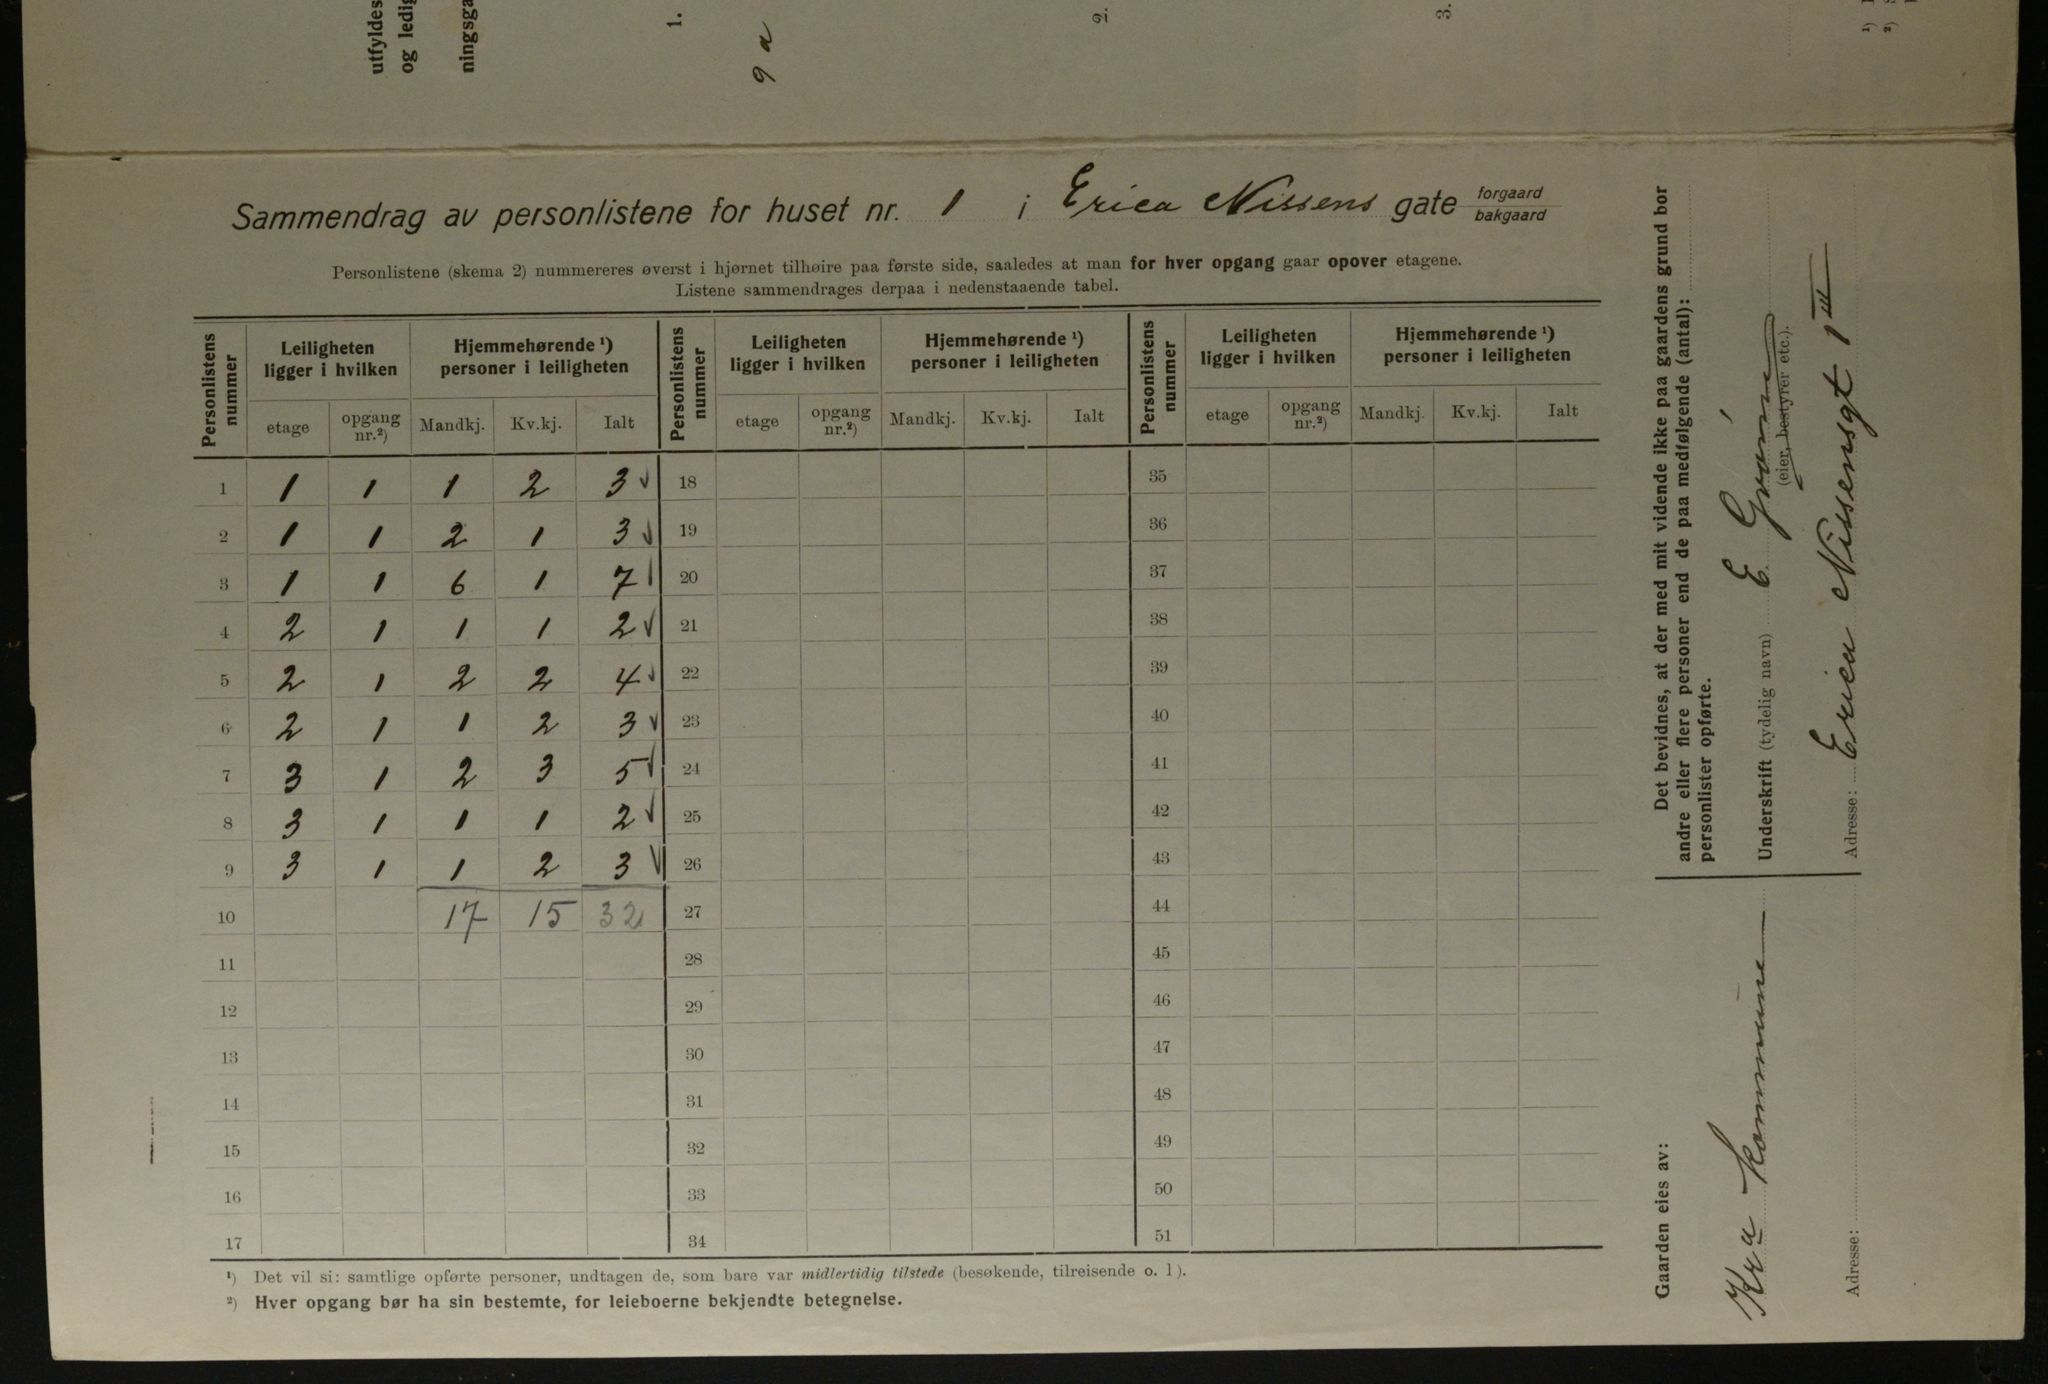 utfyldes
og ledig
ningsga
1.
9 a
2.
3.
¹)
²)
Sammendrag av personlistene for huset nr. 1 i Erica Nissens gate forgaard
bakgaard
Personlistene (skema 2) nummereres øverst i hjørnet tilhøire paa første side, saaledes at man for hver opgang gaar opover etagene.
Listene sammendrages derpaa i nedenstaaende tabel.
Personlistens nummer | Leiligheten ligger i hvilken | Hjemmehørende ¹) personer i leiligheten | Personlistens nummer | Leiligheten ligger i hvilken | Hjemmehørende ¹) personer i leiligheten | Personlistens nummer | Leiligheten ligger i hvilken | Hjemmehørende ¹) personer i leiligheten
etage | opgang nr.²) | Mandkj. | Kv.kj. | Ialt | etage | opgang nr.²) | Mandkj. | Kv.kj. | Ialt | etage | opgang nr.²) | Mandkj. | Kv.kj. | Ialt
1 1 1 1 2 3 √ 18 35
2 1 1 2 1 3 √ 19 36
3 1 1 6 1 7 √ 20 37
4 2 1 1 1 2 √ 21 38
5 2 1 2 2 4 √ 22 39
6 2 1 1 2 3 √ 23 40
7 3 1 2 3 5 √ 24 41
8 3 1 1 1 2 √ 25 42
9 3 1 1 2 3 √ 26 43
10 17 15 32 27 44
11 28 45
12 29 46
13 30 47
14 31 48
15 32 49
16 33 50
17 34 51
¹) Det vil si: samtlige opførte personer, undtagen de, som bare var midlertidig tilstede (besøkende, tilreisende o. l).
²) Hver opgang bør ha sin bestemte, for leieboerne bekjendte betegnelse.
Det bevidnes, at der med mit vidende ikke paa gaardens grund bor
andre eller flere personer end de paa medfølgende (antal):
personlister opførte.
Underskrift (tydelig navn) E. Gróm
(eier, bestyrer etc.).
Adresse: Erica Nissensgt 1
Gaarden eies av:
Kra kommune
Adresse: